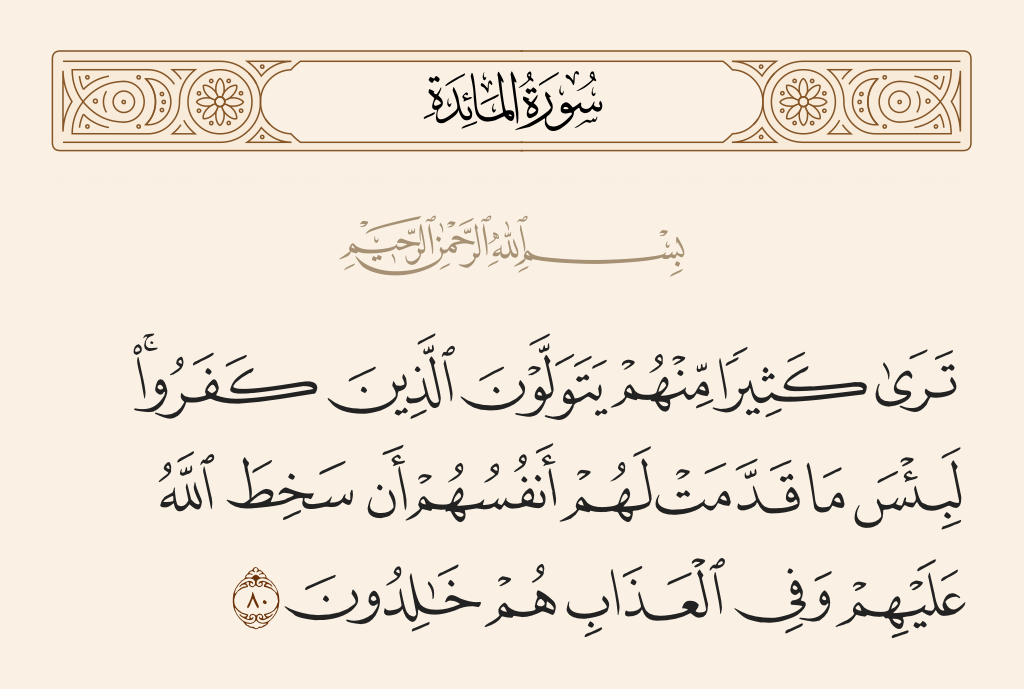 سُورَةُ المَائِدَةِ
بِسْمِ ٱللَّهِ ٱلرَّحْمَٰنِ ٱلرَّحِيمِ
تَرَىٰ كَثِيرًا مِّنْهُمْ يَتَوَلَّوْنَ ٱلَّذِينَ كَفَرُوا۟ ۚ
لَبِئْسَ مَا قَدَّمَتْ لَهُمْ أَنفُسُهُمْ أَن سَخِطَ ٱللَّهُ
عَلَيْهِمْ وَفِى ٱلْعَذَابِ هُمْ خَـٰلِدُونَ ٨٠